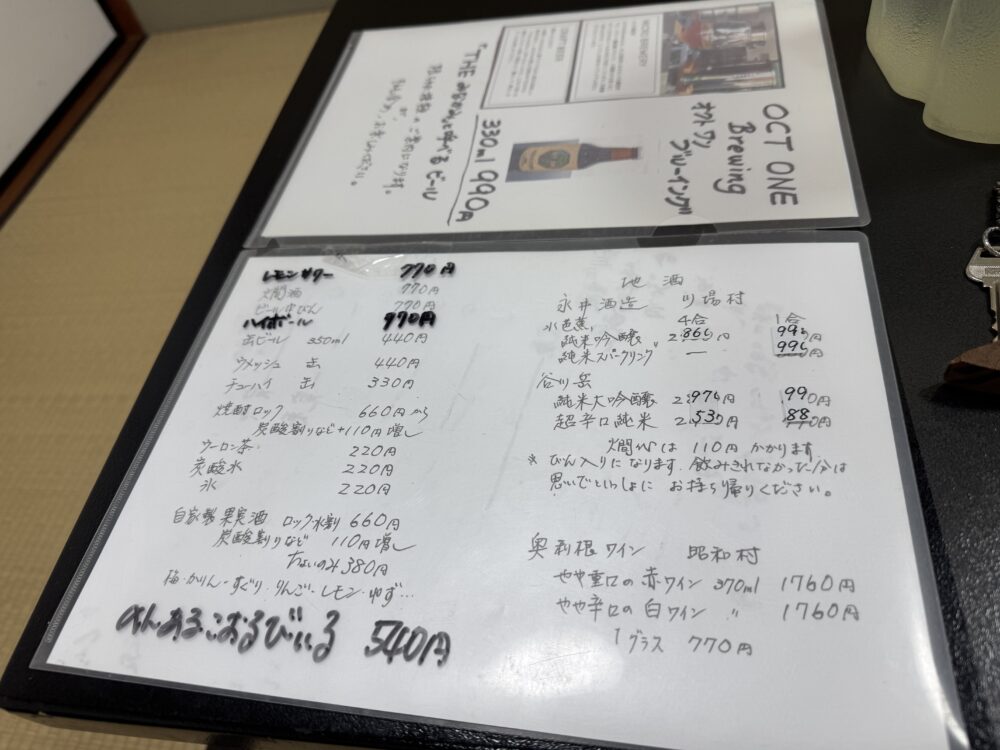 OCT ONE
Brewing
オクトワン
ブルーイング
330ml 990円
"THE みなかみと呼べるビール
レモンサワー 770円
燗酒 770円
ビール中びん 770円
ハイボール 770円
缶ビール 350ml 440円
ウメッシュ 缶 440円
チューハイ 缶 330円
焼酎ロック 660円から
炭酸割りなど+110円増し
ウーロン茶 220円
炭酸水 220円
氷 220円
自家製果実酒 ロック水割 660円
炭酸割りなど 110円増し
ちょいのみ 380円
梅・かりん・すぐり・りんご・レモン・ゆず…
のんあるこおるびぃる 540円
地酒
永井酒造 川場村
水芭蕉 4合 1合
純米吟醸 2865円 995円
純米スパークリング ー 995円
谷川岳
純米大吟醸 2970円 990円
超辛口純米 2530円 880円
燗代は 110円かかります
*びん入りになります。飲みきれなかった分は
思いでといっしょに お持ち帰りください。
奥利根ワイン 昭和村
やや重口の赤ワイン 370ml 1760円
やや辛口の白ワイン 〃 1760円
1グラス 770円